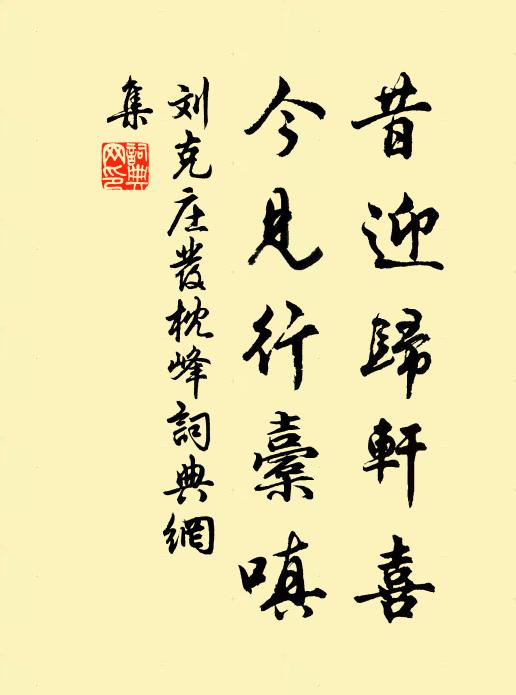 昔迎歸軒喜
今見行橐嗔
刘克庄發枕峰詞典網
集
詞典網印